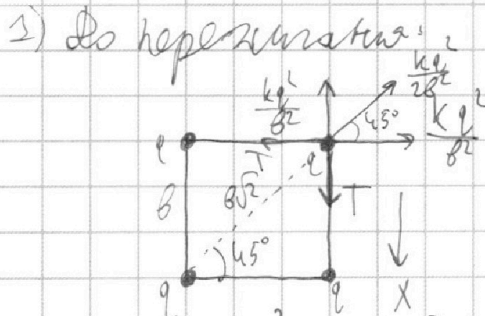 1) До пережигания:
kq²/b²
kq²/2b²
45°
kq²/b²
q
T
q
T
b
b√2
45°
q
q
X